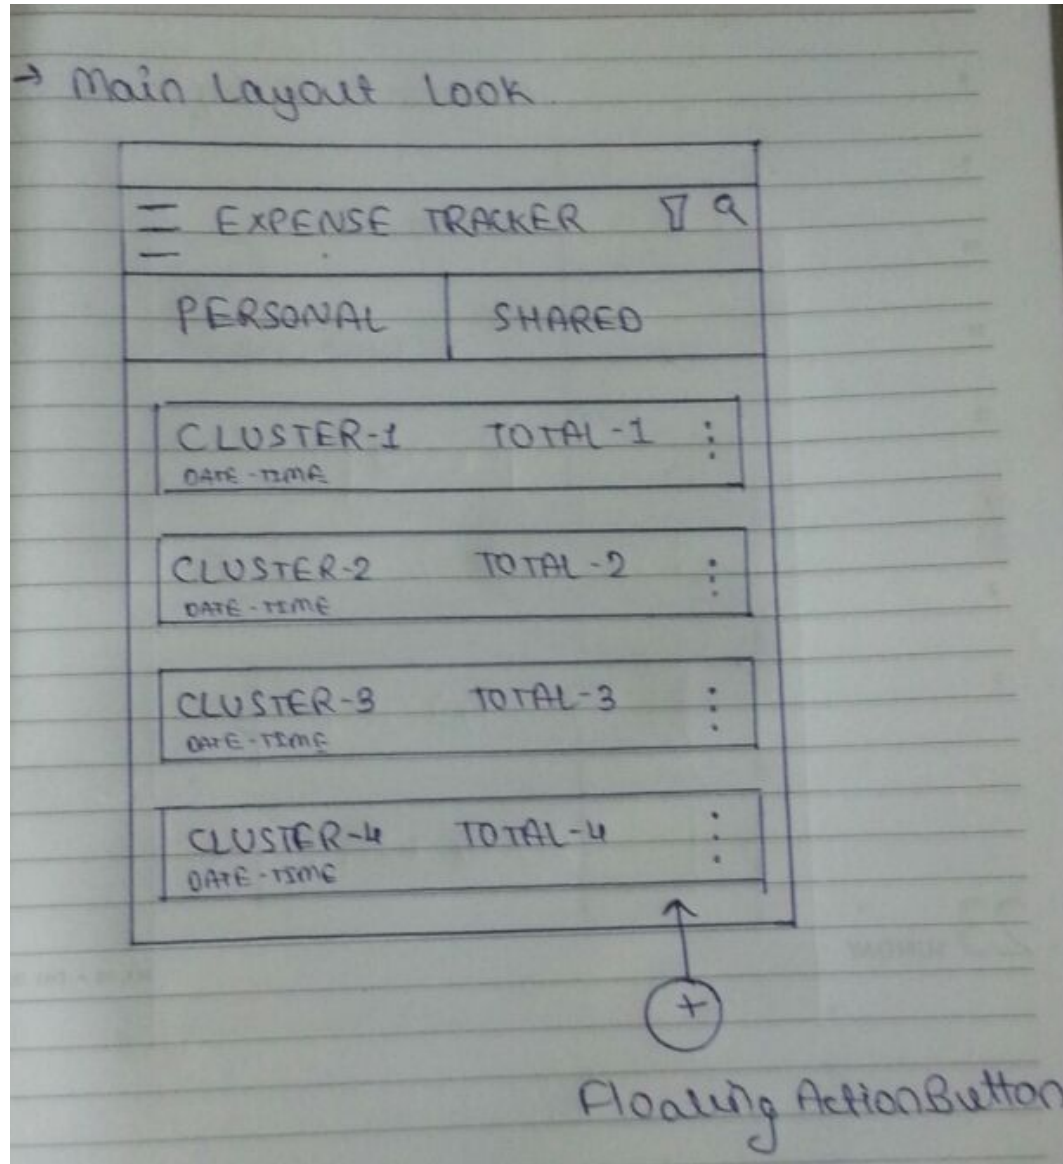 → Main Layout Look
EXPENSE TRACKER
PERSONAL SHARED
CLUSTER-1 TOTAL-1
DATE-TIME
CLUSTER-2 TOTAL-2
DATE-TIME
CLUSTER-3 TOTAL-3
DATE-TIME
CLUSTER-4 TOTAL-4
DATE-TIME
+
Floating Action Button
23 SUNDAY